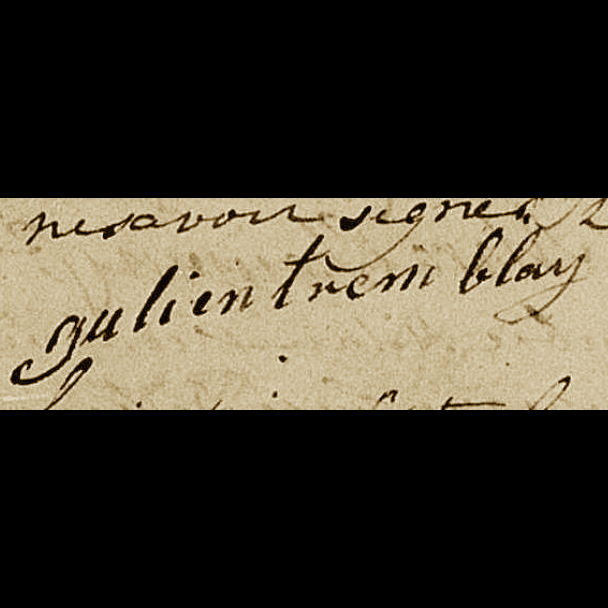 nesavoir signer
gulien trem blay